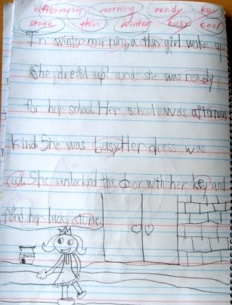 afternoon morning ready key
stage then winter busy cool
In winter morning a then girl wake up
She dress'd up and she was ready
for her school Her school was afternoon
kind She was busy Her dress was
cool She unlocked the door with her key and
her busy stage